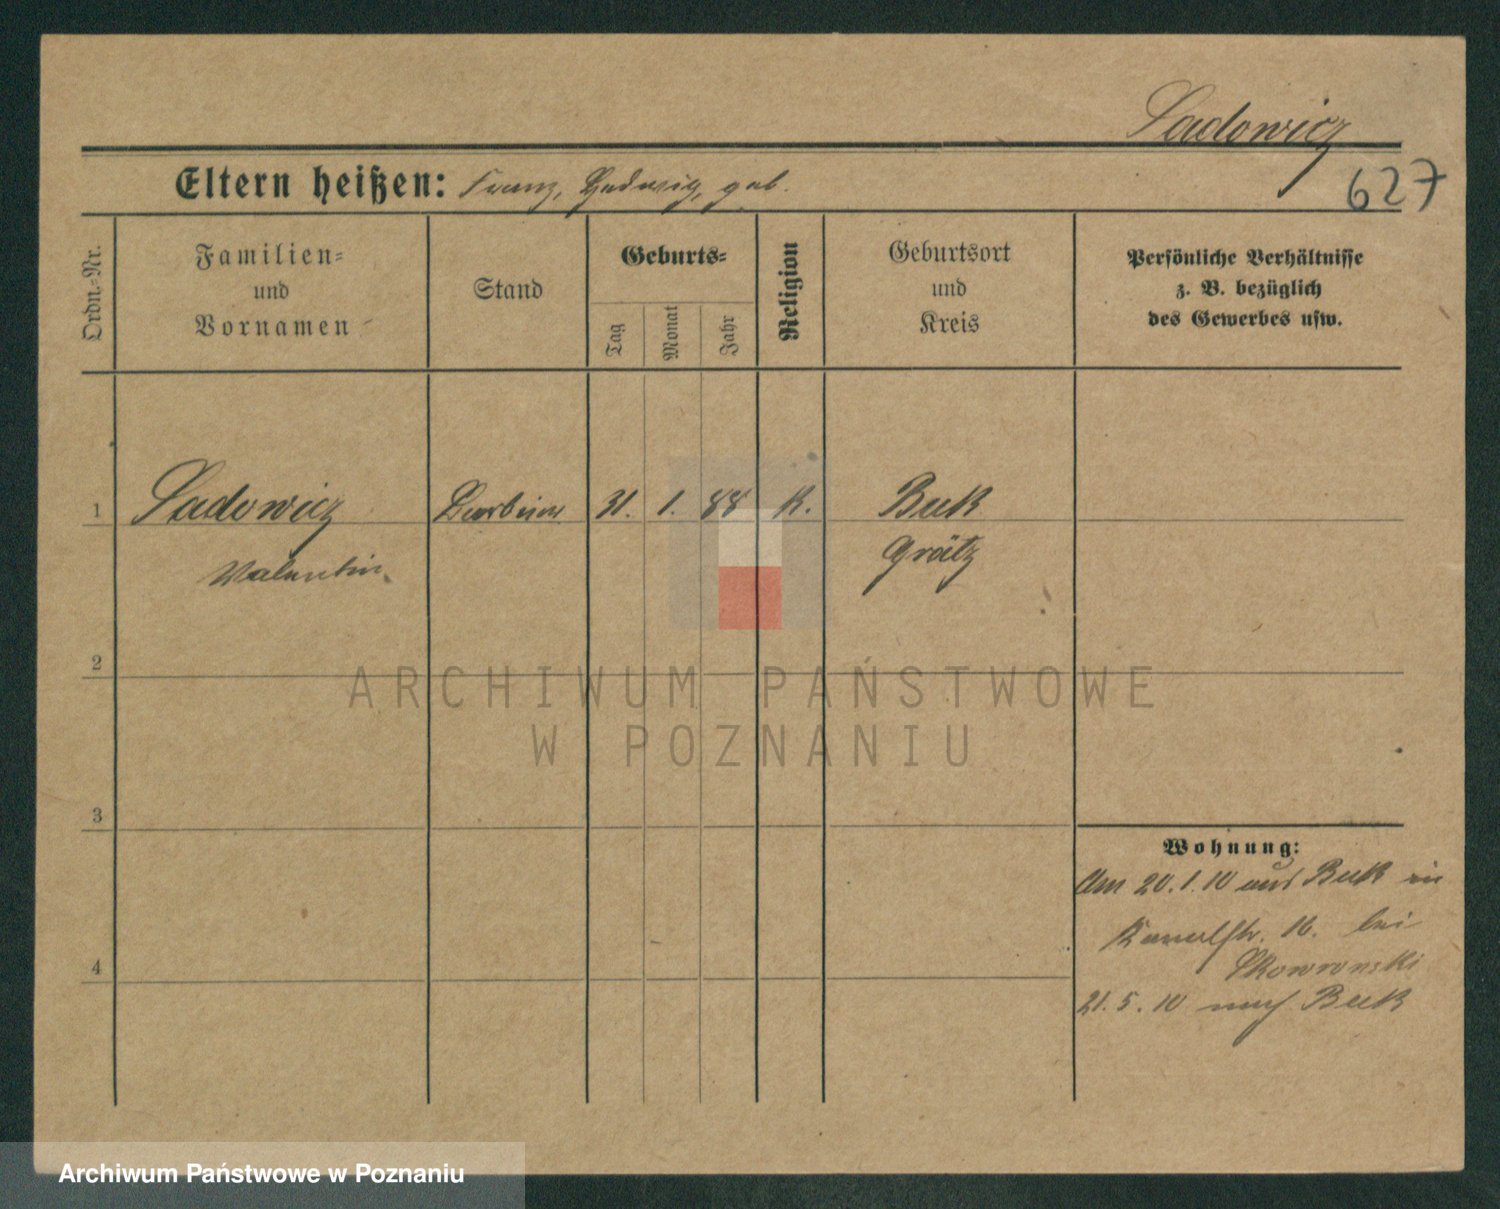 Sadowicz
627
Eltern heißen: Franz, Hedwig, geb.
Ordn.-Nr.
Familien-
und
Vornamen
Stand
Geburts-
Tag
Monat
Jahr
Religion
Geburtsort
und
Kreis
Persönliche Verhältnisse
z. B. bezüglich
des Gewerbes usw.
1 Sadowicz 31. 1. 88 K. Buk
Valentin Grätz
2
ARCHIWUM PAŃSTWOWE
W POZNANIU
3
Wohnung:
Am 20.1.10 aus Buk in
Kanalstr. 16. bei
Skowronski
4
21.5.10 nach Buk
Archiwum Państwowe w Poznaniu